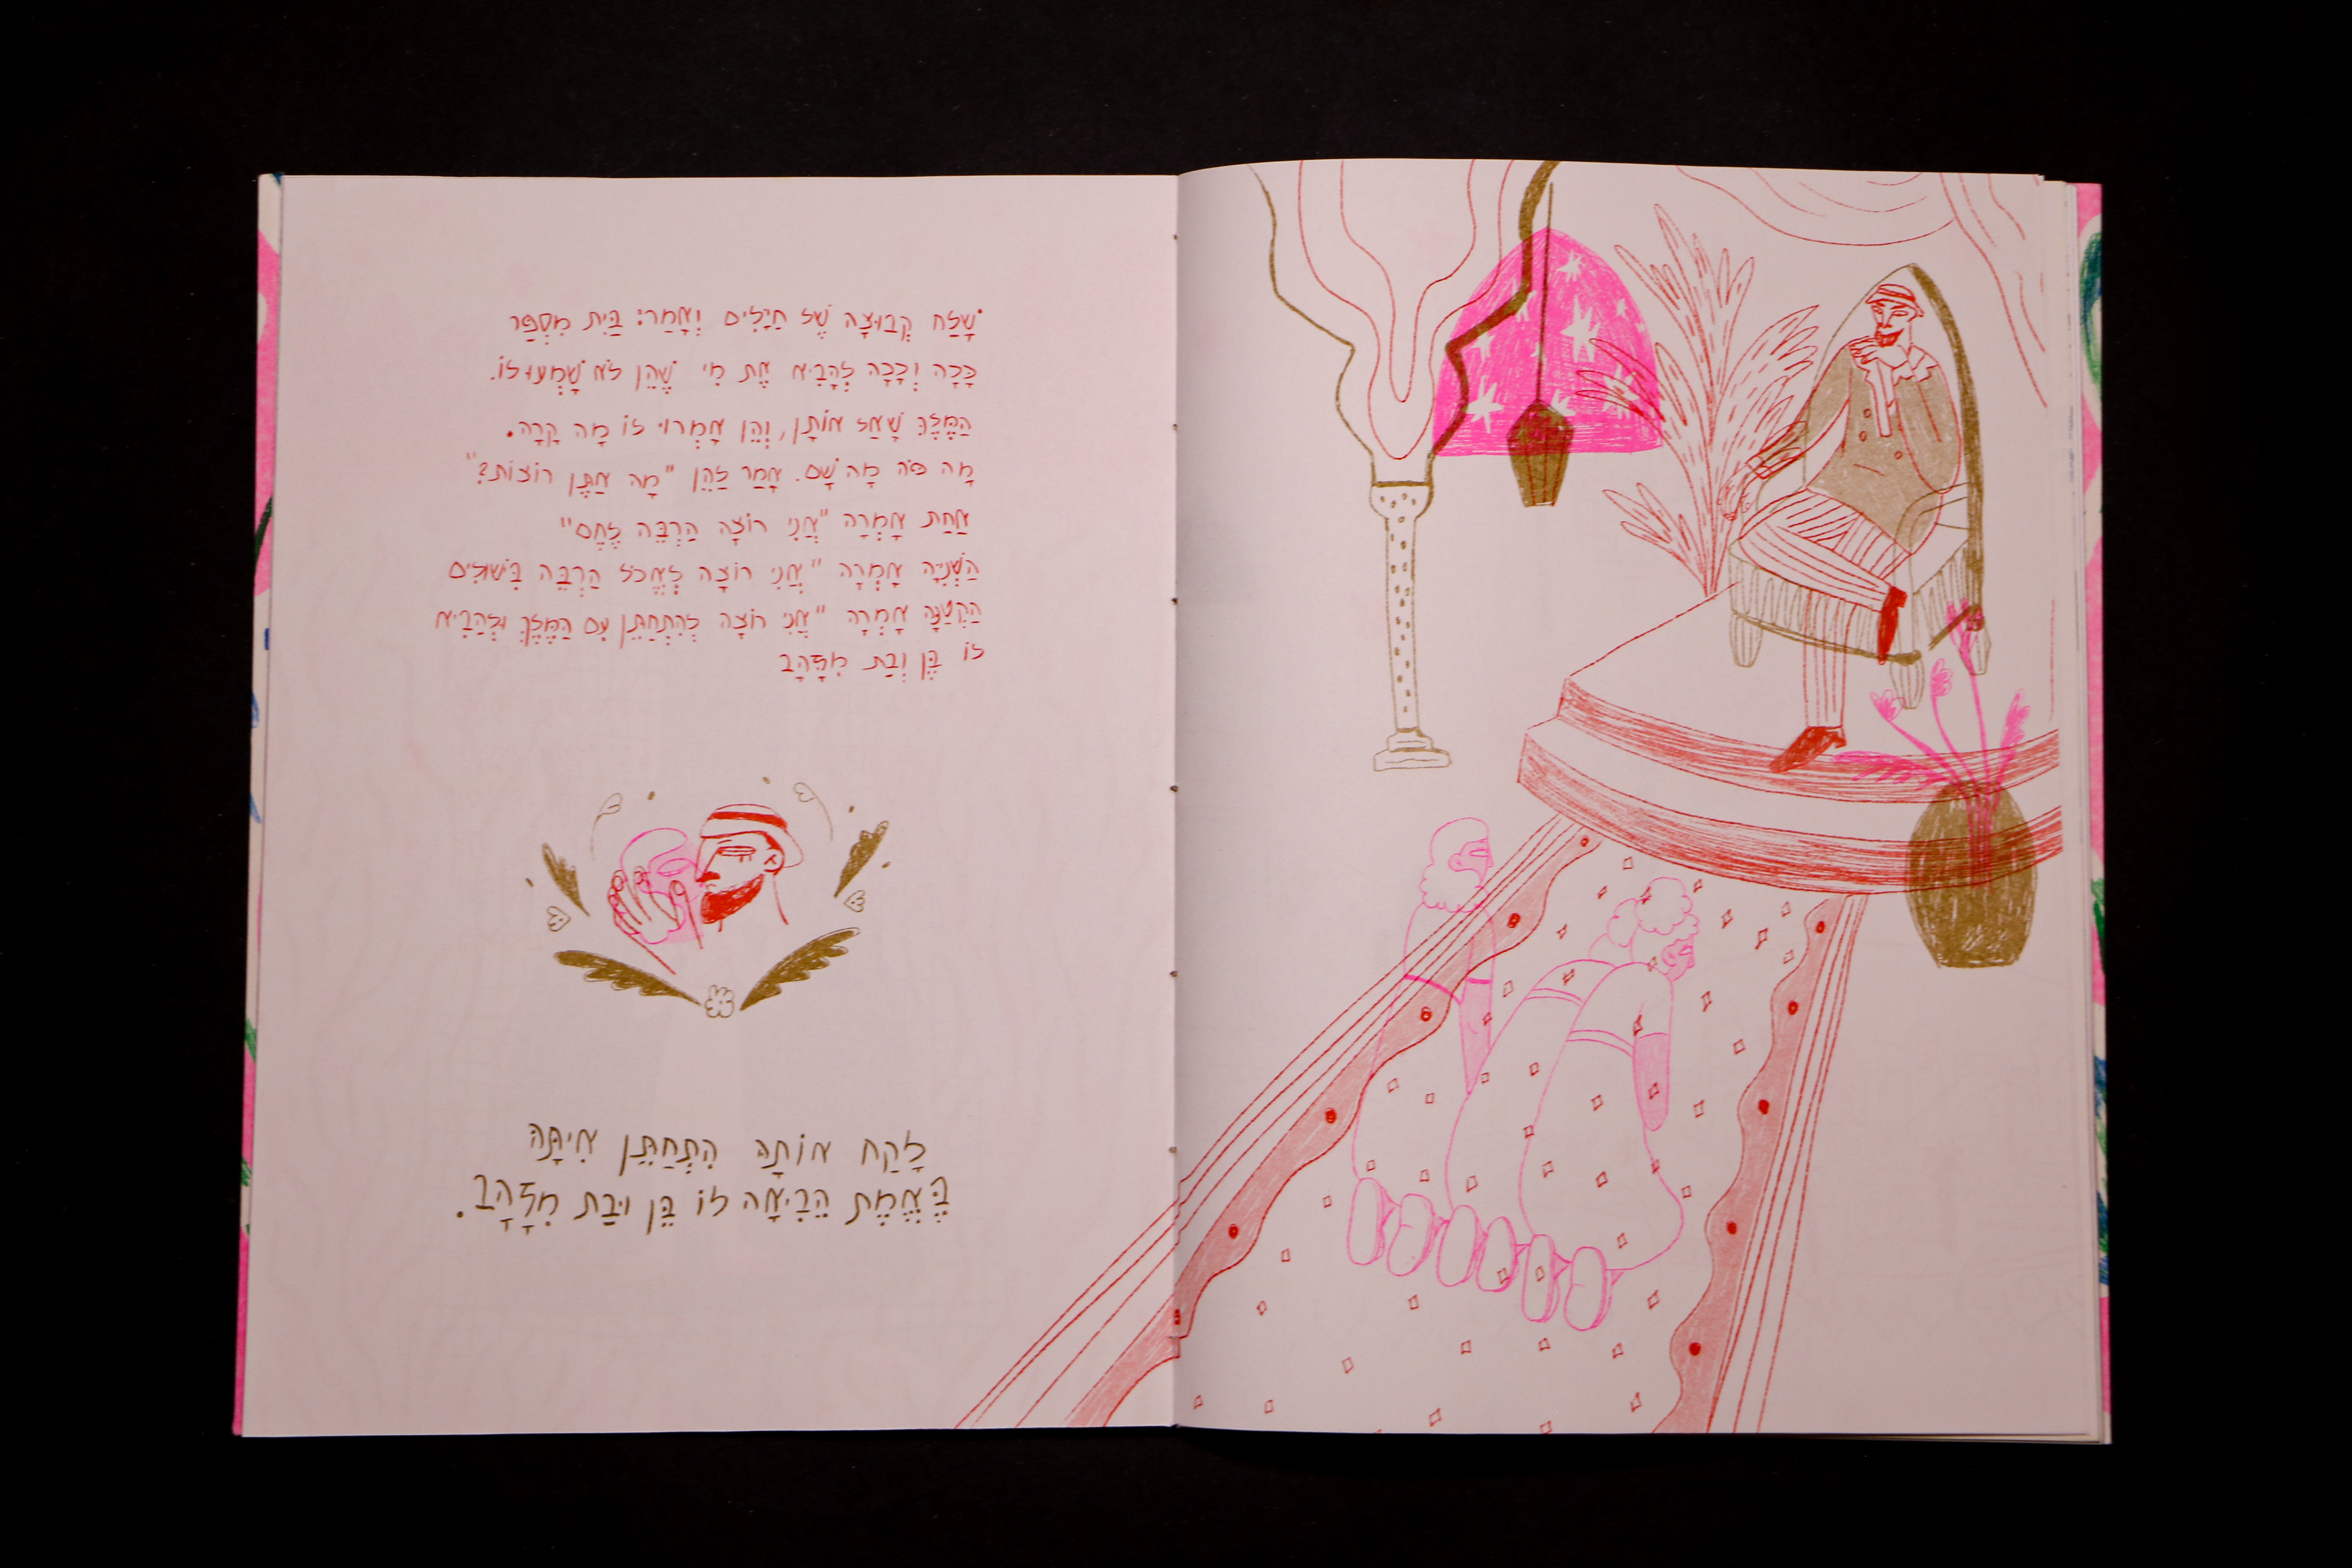 שָׁלַח קְבוּצָה שֶׁל חַיָלִים וְאָמַר: בַּיִת מִסְפַּר
כָּכָה וְכָכָה לְהָבִיא אֶת מִי שֶׁהֵן לֹא שָׁמְעוּ לוֹ.
הַמֶּלֶךְ שָׁאַל אוֹתָן, וְהֵן אָמְרוּ לוֹ מָה קָרָה.
מָה פֹּה מָה שָׁם. אָמַר לַהֵן "מָה אַתֶּן רוֹצוֹת?"
אַחַת אָמְרָה "אֲנִי רוֹצָה הַרְבֵּה לֶחֶם"
הַשְּׁנִיָּה אָמְרָה "אֲנִי רוֹצָה לֶאֱכֹל הַרְבֵּה בִּישׁוּלִים
הַקְטַנָּה אָמְרָה "אֲנִי רוֹצָה לְהִתְחַתֵּן עִם הַמֶּלֶךְ וּלְהַבִיא
לוֹ בֵּן וְבַת מִזָּהָב
לָקַח אוֹתָהּ הִתְחַתֵּן אִיתָּהּ
בֶּאֱמֶת הֵבִיאָה לוֹ בֵּן וּבַת מִזָּהָב.